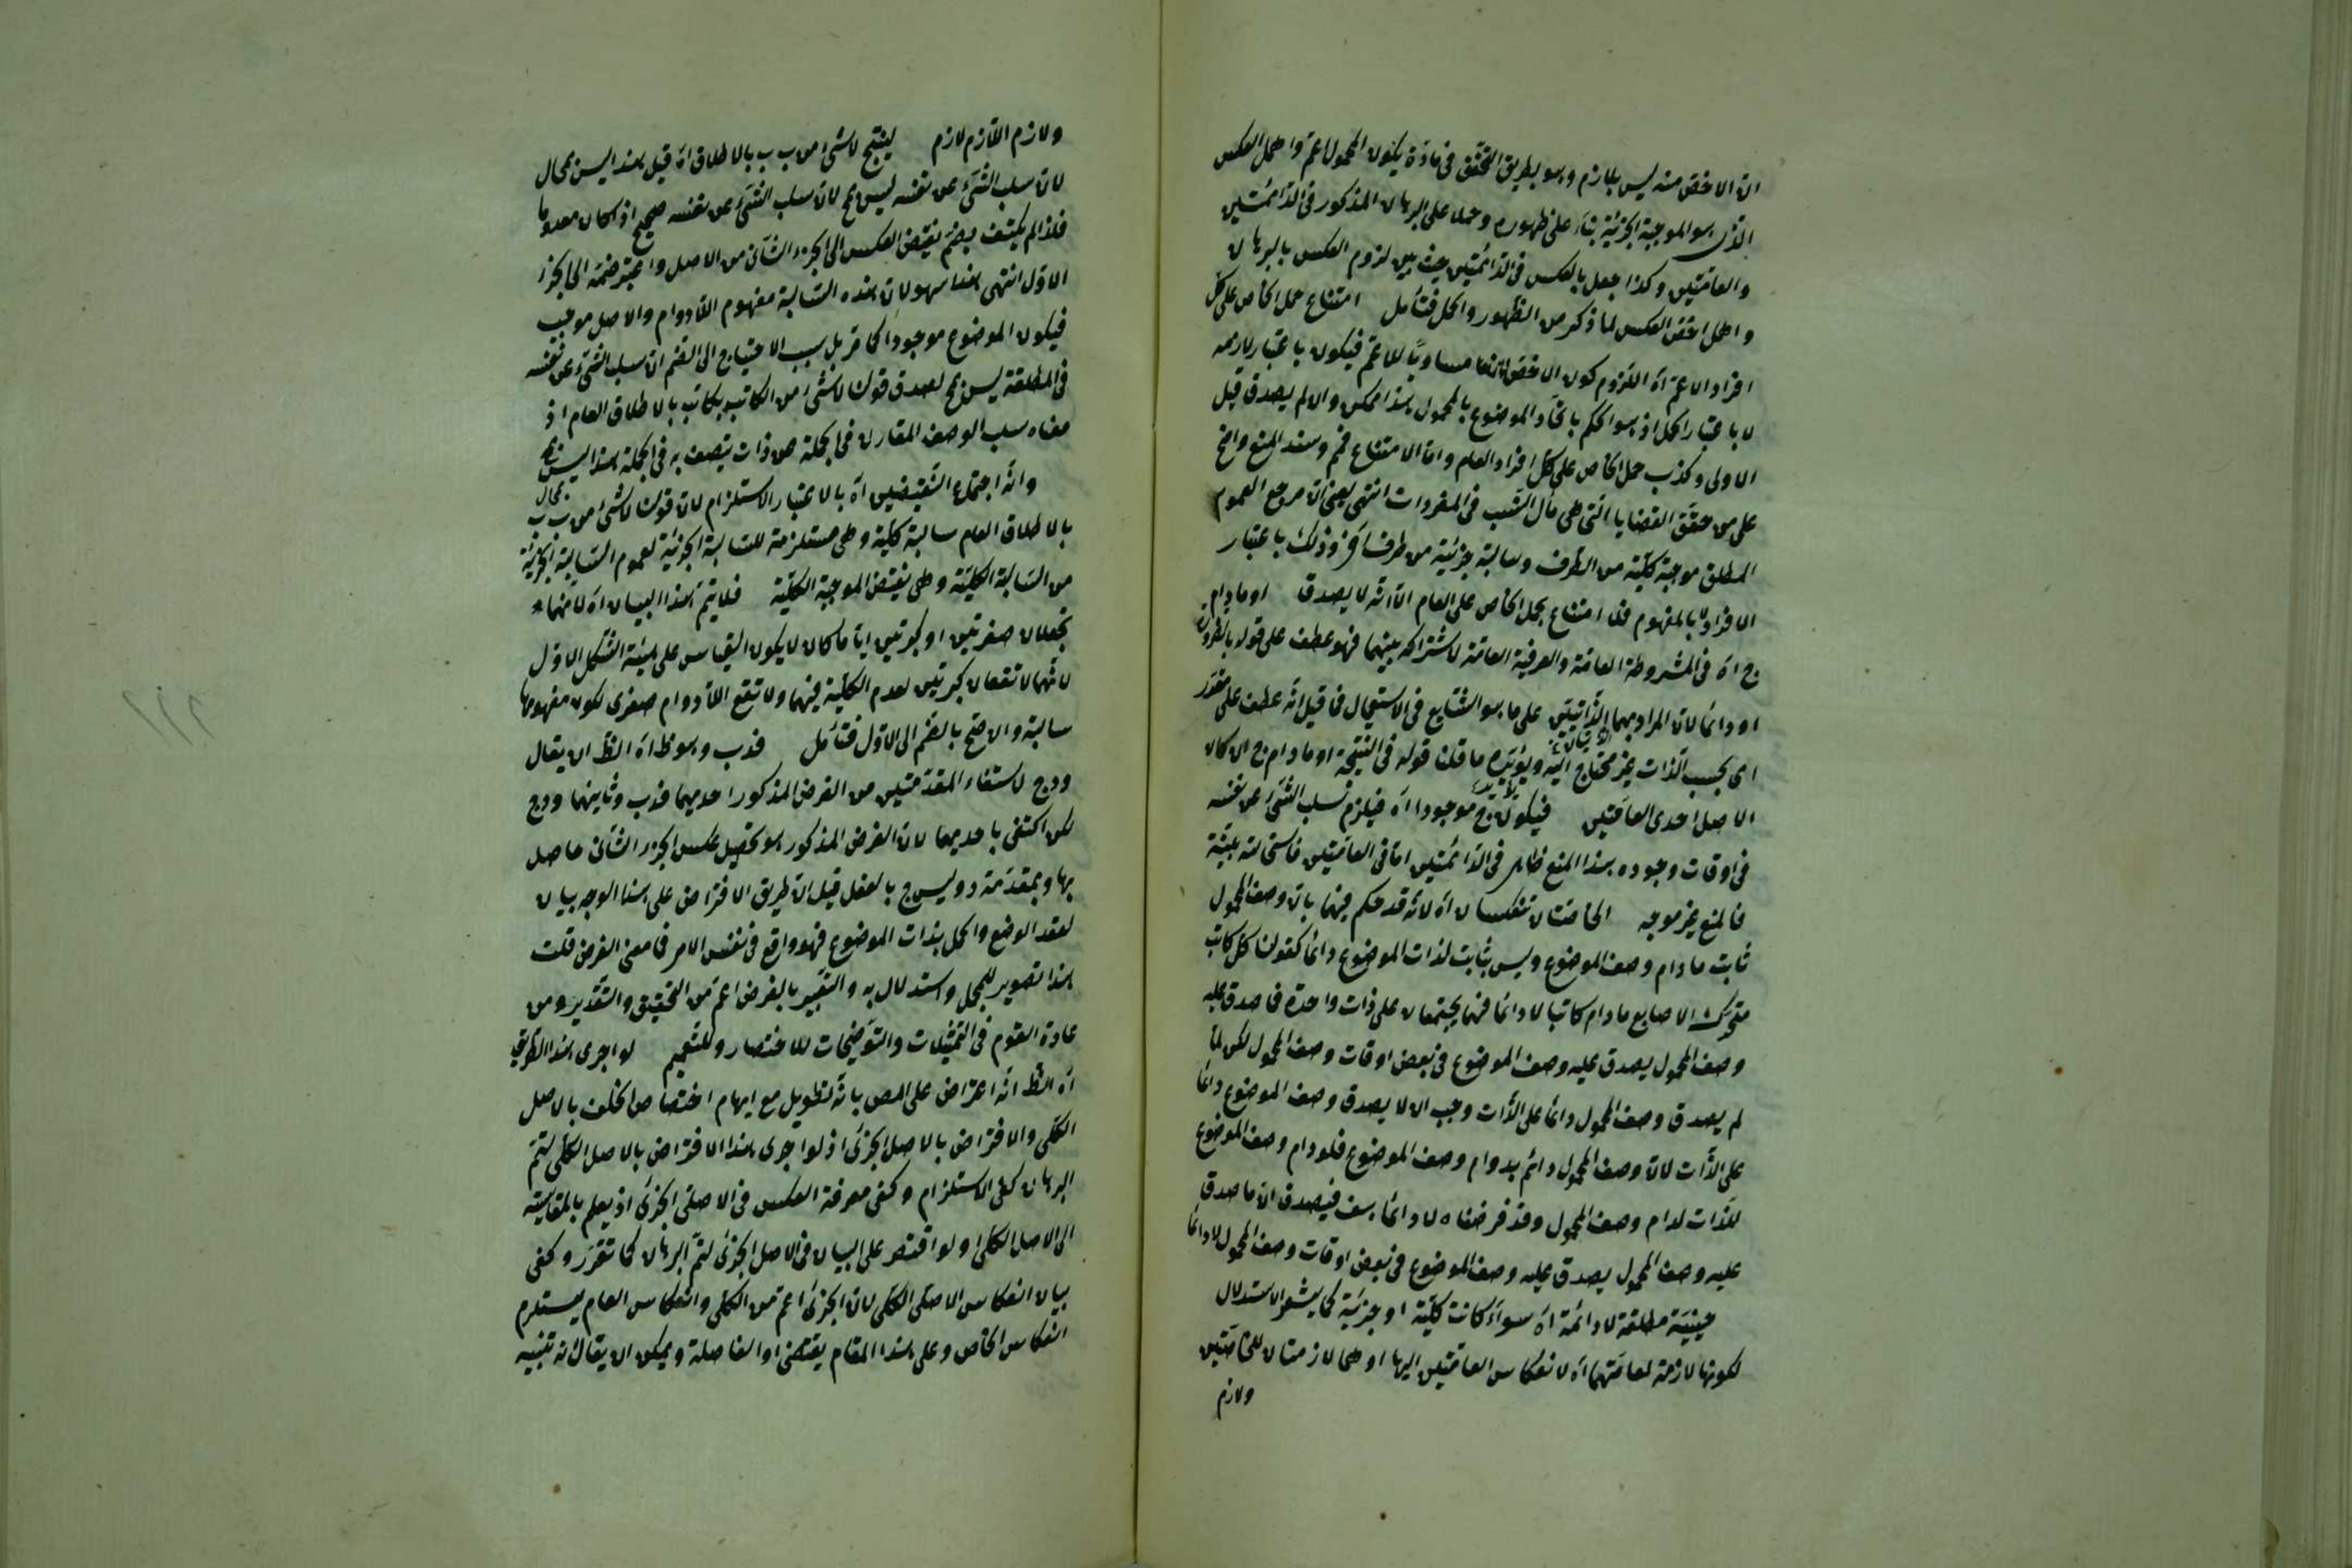 ان الاخص منه ليس بلازم وهو بطريق التحقق فى مادة يكون المحمول اعم واهمل العكس
الذى هو الموجبة الجزئية بناء على ظهوره وحملا على البرهان المذكور فى الدائمتين
والعامتين وكذا جعل بالعكس فى الدائمتين حيث بين لزوم العكس بالبرهان
واهمل اخص العكس لما ذكر من الظهور والحمل فتأمل امتناع حمل الخاص على كل
افراد الاعم اه اللزوم كون الاخص مساويا للاعم فيكون باعتبار لازمه
لا باعتبار الحمل اذ هو الحكم باتحاد الموضوع بالمحمول هذا ممكن والا لم يصدق قيل
الاولى وكذب حمل الخاص على كل افراد العام واما الامتناع فمم وسند المنع واضح
على من حقق القضايا التى هى مآل النسب فى المفردات انتهى يعنى ان مرجع العموم
المطلق موجبة كلية من الطرف وسالبة جزئية من طرف آخر وذلك باعتبار
الافراد لا بالمفهوم فلا امتناع بحمل الخاص على العام الا انه لا يصدق او مادام
ج اه فى المشروطة العامة والعرفية العامة لاشتراكه بينهما فهو عطف على قوله بالضرورة
او دائما لان المراد بهما الذاتيتين على ما هو الشايع فى الاستعمال فما قيل انه عطف على مقدر
اى بحسب الذات غير محتاج اليه ويؤيده ما قلنا قوله فى النتيجة او مادام ج ان كان
الاصل احدى العامتين فيكون ج موجودا اه فيلزم سلب الشئ عن نفسه
فى اوقات وجوده هذا المنع ظاهر فى الدائمتين اما فى العامتين فاستحالته بينة
فالمنع غير موجه الخاصتان تنعكسان اه لانه قد حكم فيهما بان وصف المحمول
ثابت مادام وصف الموضوع وليس بثابت لذات الموضوع دائما كقولنا كل كاتب
متحرك الاصابع مادام كاتبا لا دائما فهما يجتمعان على ذات واحدة فما صدق عليه
وصف المحمول يصدق عليه وصف الموضوع فى بعض اوقات وصف المحمول لكن لما
لم يصدق وصف المحمول دائما على الذات وجب ان لا يصدق وصف الموضوع دائما
على الذات لان وصف المحمول دائم بدوام وصف الموضوع فلو دام وصف الموضوع
للذات لدام وصف المحمول وقد فرضناه لا دائما هف فيصدق ان ما صدق
عليه وصف المحمول يصدق عليه وصف الموضوع فى بعض اوقات وصف المحمول لا دائما
حينية مطلقة لا دائمة اه سواء كانت كلية او جزئية كما يشعر الاستدلال
لكونها لازمة لعامتهما اه لانعكاس العامتين اليها او هى لازمتان للخاصتين
ولازم
ولازم اللازم لازم لينتج لا شئ من ب ب بالاطلاق اه قيل هذا ليس بمحال
لان سلب الشئ عن نفسه ليس مح لان سلب الشئ عن نفسه صحيح اذ كان معدوما
فلذا لم يكتف بضم نقيض العكس الى الجزء الثانى من الاصل واعتبر ضمه الى الجزء
الاول انتهى هذا سهو لان هذه السالبة مفهوم اللادوام والاصل موجب
فيكون الموضوع موجودا كما مر بل سبب الاحتياج الى الضم ان سلب الشئ عن نفسه
فى المطلقة ليس بمح لصدق قولنا لا شئ من الكاتب بكاتب بالاطلاق العام اذ
معناه سلب الوصف المقارن فى الجملة عن ذات يتصف به فى الجملة هذا ليس بمح
وانه اجتماع النقيضين اه بالاعتبار الاستلزام لان قولنا لا شئ من ب ب
بالاطلاق العام سالبة كلية وهى مستلزمة للسالبة الجزئية لعموم السالبة الجزئية
من السالبة الكلية وهى نقيض الموجبة الكلية فلا يتم هذا البيان اه لانهما
تجعلان صغرتين او كبرتين ايا ما كان لا يكون القياس على هيئة الشكل الاول
لانهما لا تقعان كبرتين لعدم الكلية فيهما ولا تقع اللادوام صغرى لكون مفهومها
سالبة والاصح بالضم الى الاول فتأمل فدب وهو ظ اه الظ ان يقال
ودج لاستفاء المقدمتين من الفرض المذكور احديهما فدب وثانيهما ودج
لكن اكتفى باحديهما لان الغرض المذكور هو تحصيل عكس الجزء الثانى حاصل
بها وبمقدمة د وليس ج بالفعل قيل ان طريق الافتراض على هذا الوجه بيان
لعقد الوضع والحمل بذات الموضوع فهو واقع فى نفس الامر فما معنى الفرض قلت
هذا تصوير للمحل واستدلال به والتعبير بالفرض اعم من التحقيق والتقدير ومن
عادة القوم فى التمثيلات والتوضيحات للاختصار وللتعميم لو اجرى هذا الطريق
اه الظ انه اعتراض على المص بانه تطويل مع ايهام اختصاص الخلف بالاصل
الكلى والافتراض بالاصل الجزئ اذ لو اجرى هذا الافتراض بالاصل الكلى لتم
البرهان كفى الاستلزام وكفى معرفة العكس فى الاصل الجزئ اذ يعلم بالمقايسة
الى الاصل الكلى او لو اقتصر على البيان فى الاصل الجزئ لتم البرهان كما تقرر وكفى
بيان انعكاس الاصل الكلى لان الجزئ اعم من الكلى وانعكاس العام يستلزم
انعكاس الخاص وعلى هذا المقام يقتضى او الفاصلة ويمكن ان يقال انه تنبيه